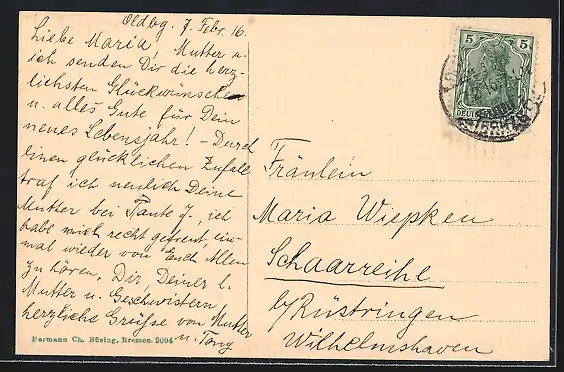 Oldbg. 7. Febr. 16.
Liebe Maria, Mutter u.
ich senden Dir die herz-
lichsten Glückwünsche
u. alles Gute für Dein
neues Lebensjahr! - Durch
einen glücklichen Zufall
traf ich neulich Deine
Mutter bei Tante J., ich
habe mich recht gefreut, ein-
mal wieder von Euch Allen
zu hören. Dir, Deiner l.
Mutter u. Geschwistern
herzliche Grüße von Mutter
u. Tony
Hermann Ch. Büsing, Bremen. 2094
5 5
Fräulein
Maria Wiepken
Schaarreihe
b/Rüstringen
Wilhelmshaven